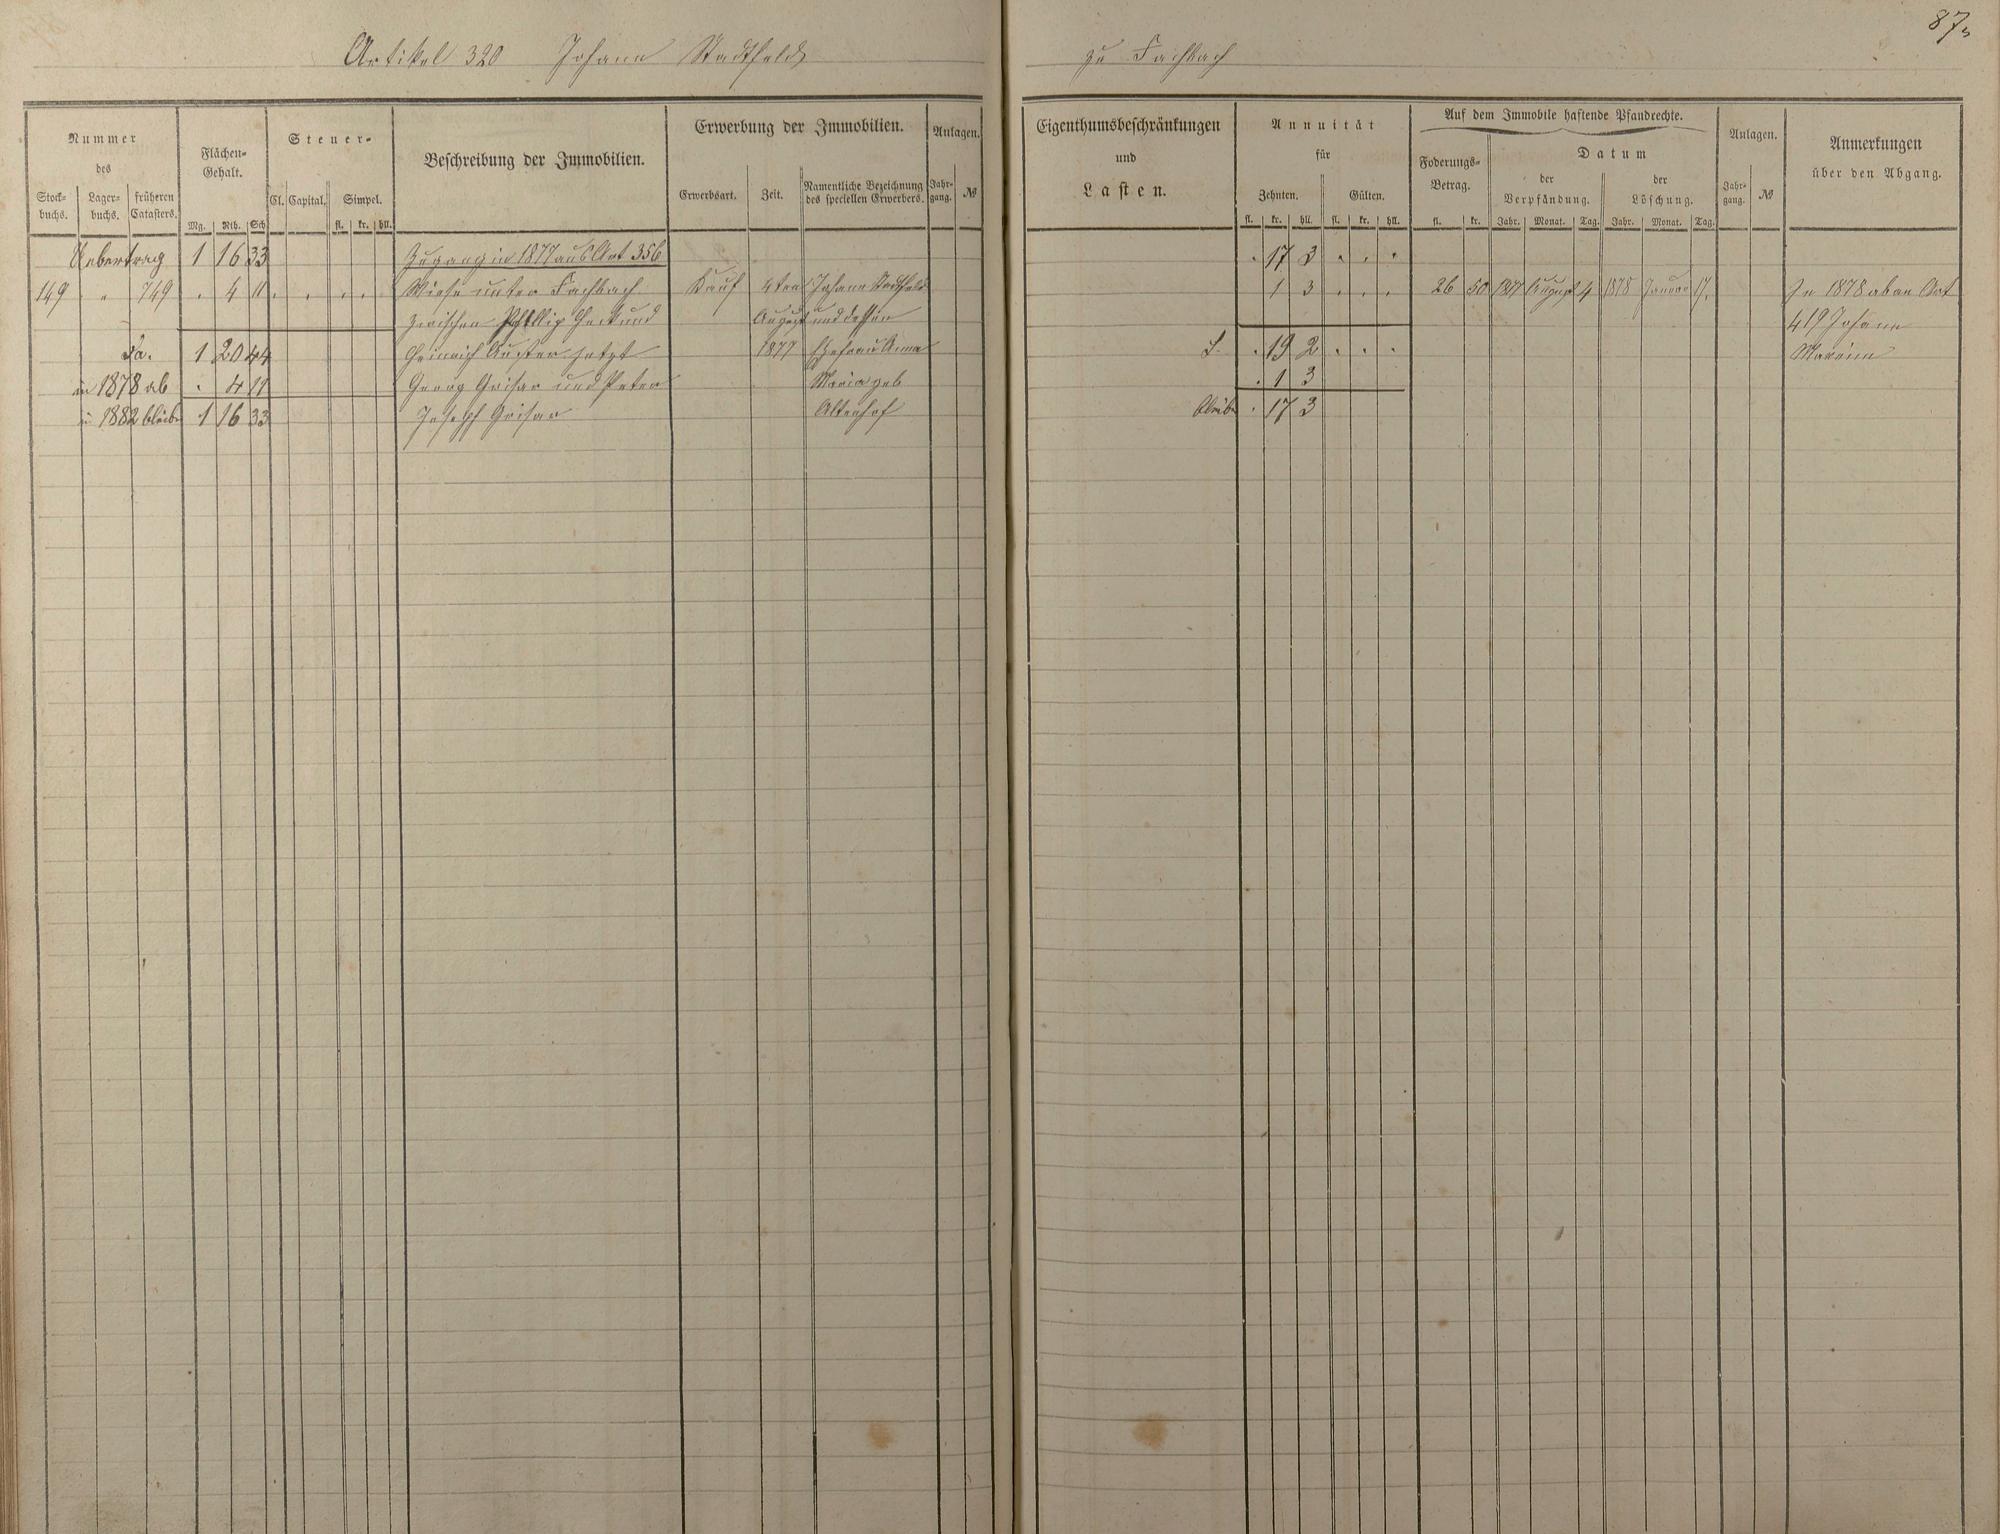 87
Artikel 320 Johann Stadtfeld
zu Fachbach
Nummer
des
Stock-buchs.
Lager-buchs.
früheren Catasters.
Flächen-Gehalt.
Mg. Rth. Sch
Steuer-
Cl. Capital. Simpel.
fl. kr. hll.
Beschreibung der Immobilien.
Erwerbung der Immobilien.
Erwerbsart. Zeit.
Namentliche Bezeichnung
des speciellen Erwerbers.
Anlagen.
Jahr-gang. №
Uebertrag 1 16 33 Zugang in 1877 aus Art 356
149 " 749 . 4 11 . . . . Wiese unter Fachbach Kauf 4ten Johann Stadtfeld
zwischen Phillip Heck und August und dessen
Sa. 1 20 44 Heinrich jetzt 1877 Ehefrau Anna
in 1878 ab . 4 11 Georg Grisar und Peter Maria geb
in 1882 bleibt 1 16 33 Joseph Grisar Altenhof
Eigenthumsbeschränkungen
und
Lasten.
Annuität
für
Zehnten. Gülten.
fl. kr. hll. fl. kr. hll.
Auf dem Immobile haftende Pfandrechte.
Foderungs-
Betrag.
fl. kr.
Datum
der
Verpfändung.
Jahr. Monat. Tag.
der
Löschung.
Jahr. Monat. Tag.
Anlagen.
Jahr-gang. №
Anmerkungen
über den Abgang.
. 17 3 . . .
1 3 . . . 26 50 1877 August 4 1878 Januar 17. In 1878 ab an Art
419 Johann
S. . 19 2 . . .
. 1 3
bleibt . 17 3